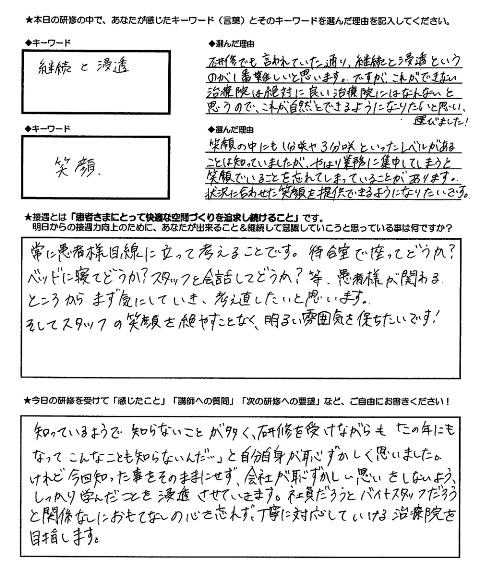 ★本日の研修の中で、あなたが感じたキーワード（言葉）とそのキーワードを選んだ理由を記入してください。
◆キーワード
継続と浸透
◆選んだ理由
研修でも言われていた通り、継続と浸透という
のが1番難しいと思います。ですが、これができない
治療院は絶対に良い治療院にはなれないと
思うので、これが自然とできるようになりたいと思い、
選びました!
◆キーワード
笑顔
◆選んだ理由
笑顔の中にも1分咲や3分咲といったレベルがある
ことは知っていましたが、やはり業務に集中してしまうと
笑顔でいることを忘れてしまっていることがあります。
状況に合わせた笑顔を提供できるようになりたいです。
★接遇とは「患者さまにとって快適な空間づくりを追求し続けること」です。
明日からの接遇力向上のために、あなたが出来ることを継続して意識していこうと思っている事は何ですか?
常に患者様目線に立って考えることです。待合室で座ってどうか?
ベッドに寝てどうか?スタッフと会話してどうか?等、患者様が関わる
ところからまず気にしていき、考え直したいと思います。
そしてスタッフの笑顔を絶やすことなく、明るい雰囲気を保ちたいです!
★今日の研修を受けて「感じたこと」「講師への質問」「次の研修への要望」など、ご自由にお書きください!
知っているようで知らないことが多く、研修を受けながらも「この年にも
なってこんなことも知らないんだ…」と自分自身が恥ずかしく思いました。
けれど今回知った事をそのままにせず、会社が恥ずかしい思いをしないよう、
しっかり学んだことを浸透させていきます。社員だろうとバイトスタッフだろう
と関係なしにおもてなしの心を忘れず、丁寧に対応していける治療院を
目指します。